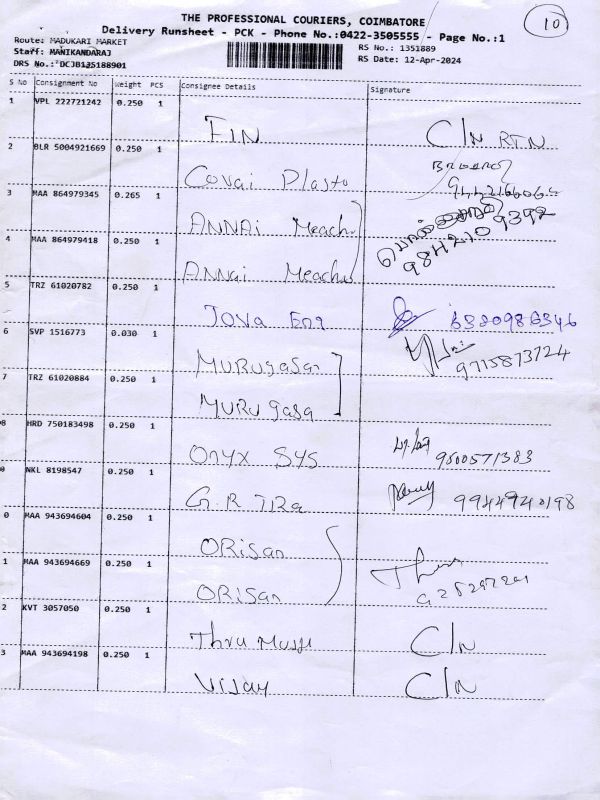 THE PROFESSIONAL COURIERS, COIMBATORE
10
Delivery Runsheet - PCK - Phone No.:0422-3505555 - Page No.:1
Route: MADUKARI MARKET
RS No.: 1351889
Staff: MANIKANDARAJ
RS Date: 12-Apr-2024
DRS No.: DCJB135188901
S No Consignment No Weight PCS Consignee Details Signature
1 VPL 222721242 0.250 1 FIN C/N RTN
2 BLR 5004921669 0.250 1 Covai Plasto
3 MAA 864979345 0.265 1 ANNAi Meach
பொன்
9842109392
4 MAA 864979418 0.250 1 ANNai Meach
5 TRZ 61020782 0.250 1 Jova Eng 6380986346
6 SVP 1516773 0.030 1 MURUgasan 9715873724
7 TRZ 61020884 0.250 1 MURUgasa
8 HRD 750183498 0.250 1 Onyx SYS 9500571383
0 NKL 8198547 0.250 1 G.R TIRa 9944940198
0 MAA 943694604 0.250 1 ORiSan
1 MAA 943694669 0.250 1 ORiSan
2 KVT 3057050 0.250 1 Thru C/N
3 MAA 943694198 0.250 1 Vijay C/N